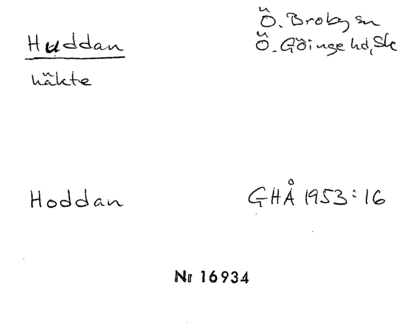 Huddan Ö. Broby sn
häkte Ö. Göinge hd, Sk
Hoddan GHÅ 1953:16
Nr 16934